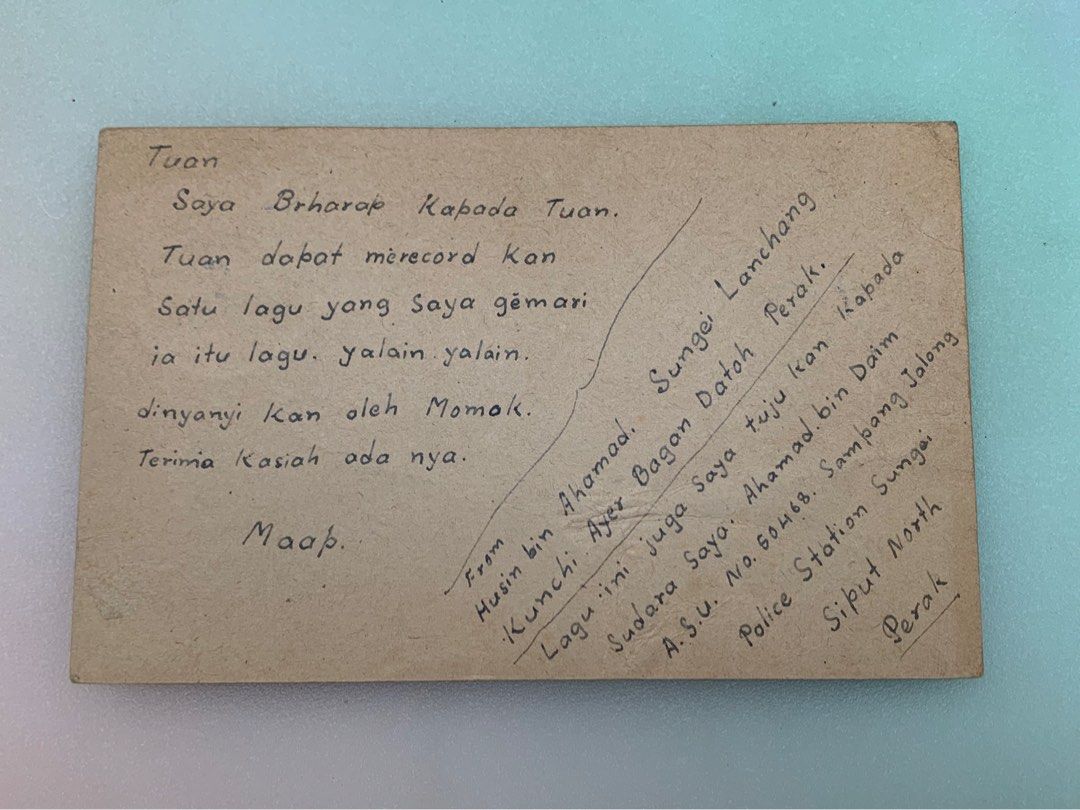 Tuan
Saya Brharap Kapada Tuan.
Tuan dapat merecord Kan
Satu lagu yang Saya gĕmari
ia itu lagu. yalain yalain.
dinyanyi Kan oleh Momok.
Terima Kasiah ada nya.
Maap.
From
Husin bin Ahamad. Sungei Lanchang
Kunchi Ayer Bagan Datoh Perak.
Lagu ini juga Saya tuju Kan Kapada
Sudara Saya. Ahamad. bin Daim
A.S.U. No. 50468. Sampang Jalong
Police Station Sungei
Siput North
Perak